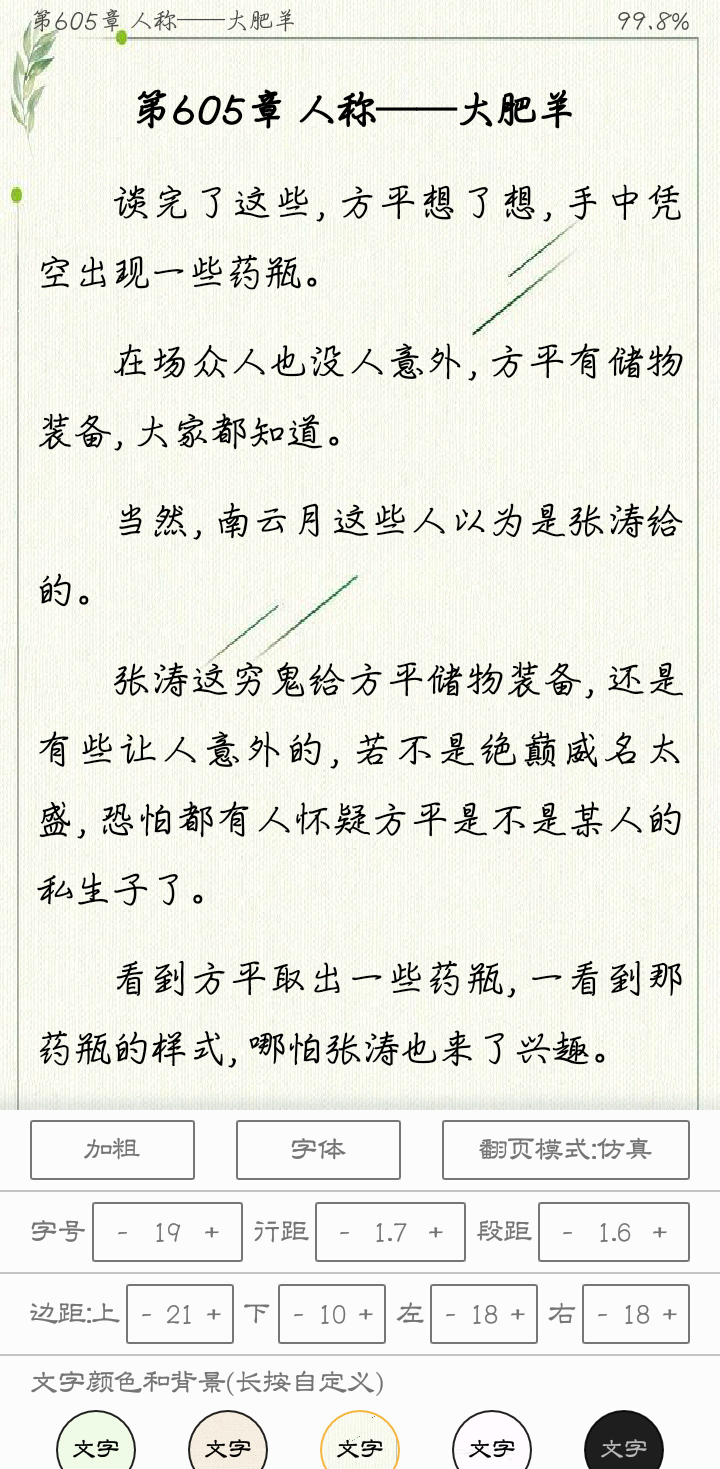 第605章 人称——大肥羊 99.8%
第605章 人称——大肥羊
谈完了这些,方平想了想,手中凭
空出现一些药瓶。
在场众人也没人意外,方平有储物
装备,大家都知道。
当然,南云月这些人以为是张涛给
的。
张涛这穷鬼给方平储物装备,还是
有些让人意外的,若不是绝巅威名太
盛,恐怕都有人怀疑方平是不是某人的
私生子了。
看到方平取出一些药瓶,一看到那
药瓶的样式,哪怕张涛也来了兴趣。
加粗 字体 翻页模式:仿真
字号 - 19 + 行距 - 1.7 + 段距 - 1.6 +
边距:上 - 21 + 下 - 10 + 左 - 18 + 右 - 18 +
文字颜色和背景(长按自定义)
文字 文字 文字 文字 文字